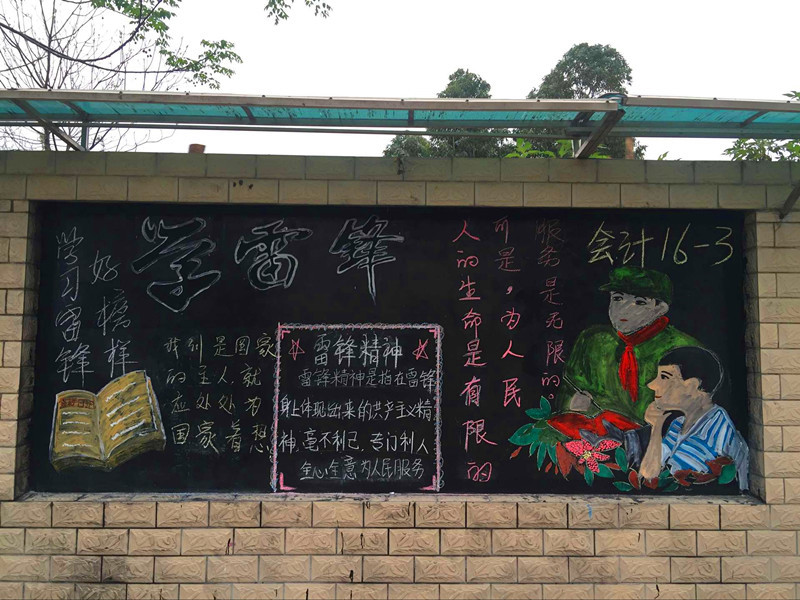 学雷锋
学习雷锋
好榜样
我们是国家
的主人,就
应处处为
国家着想
雷锋精神
雷锋精神是指在雷锋
身上体现出来的共产主义精
神,毫不利己,专门利人
全心全意为人民服务
人的生命是有限的
可是,为人民
服务是无限的。
会计16-3